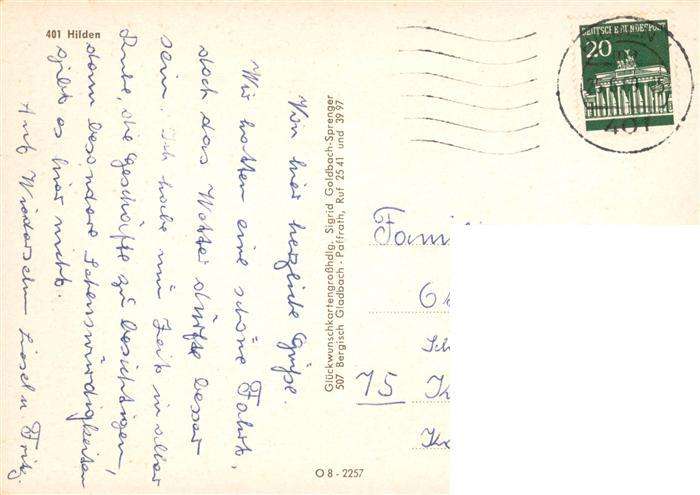 401 Hilden
Von hier herzliche Grüße.
Wir hatten eine schöne Fahrt,
doch das Wetter dürfte besser
sein. Ich habe nun Zeit in aller
Ruhe, die Geschäfte zu besichtigen,
denn besondere Sehenswürdigkeiten
gibt es hier nicht.
Auf Wiedersehn Liesel u Fritz
Glückwunschkartengroßhdlg. Sigrid Goldbach-Sprenger
507 Bergisch Gladbach - Paffrath, Ruf 25 41 und 39 97
DEUTSCHE BUNDESPOST
20
401
Famil
75
O 8 - 2257